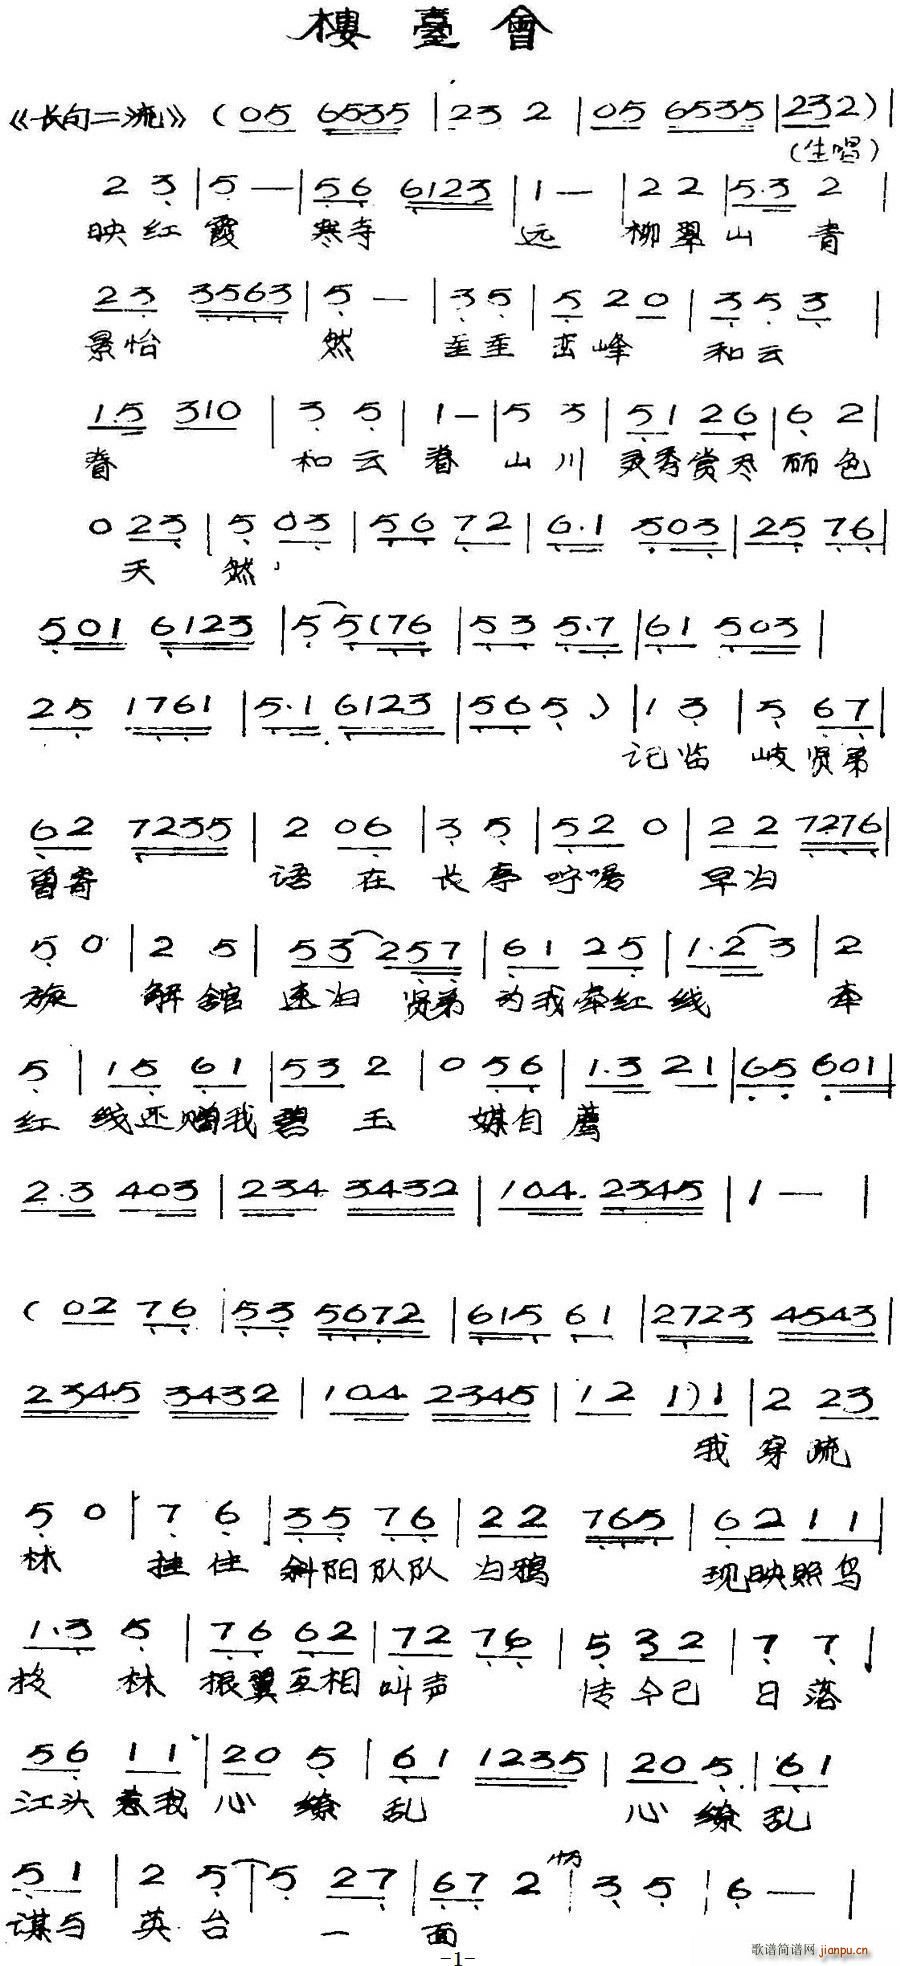 樓臺會
《长句二流》 ( 05 6535 | 23 2 | 05 6535 | 232 ) |
(生唱)
2 3 | 5 — | 56 6123 | 1 — | 22 | 5·3 2 |
映红霞 寒寺 远 柳翠山 青
23 3563 | 5 — | 35 | 520 | 353 |
景怡 然 峦峰 和云
15 310 | 3 5 | 1 — | 5 3 | 51 26 | 62 |
眷 和云 眷 山川 灵秀赏尽 丽色
0 23 | 5 03 | 56 72 | 6·1 503 | 25 76 |
天 然
501 6123 | 5 5(76 | 53 5·7 | 61 503 |
25 1761 | 5·1 6123 | 565 ) | 1 3 | 5 67 |
记临 歧贤弟
62 7235 | 2 06 | 3 5 | 52 0 | 22 7276 |
曾寄 语在 长亭 咛嘱 早归
5 0 | 2 5 | 53 257 | 61 25 | 1·2 3 | 2
旋 解舘 速归 贤弟 为我牵红线 牵
5 | 15 61 | 53 2 | 0 56 | 1·3 21 | 65 601 |
红 线还赠我碧 玉 媒自荐
2·3 403 | 234 3432 | 104 2345 | 1 — |
( 02 76 | 53 5672 | 615 61 | 2723 4543 |
2345 3432 | 104 2345 | 12 1)1 | 2 23
我 穿疏
5 0 | 7 6 | 35 76 | 22 765 | 62 11 |
林 挂住 斜阳队队 归鸦 现映照鸟
1·3 5 | 76 62 | 72 76 | 5 32 | 7 7 |
投 林 振翼互相 叫声 传今已 日落
56 11 | 20 5 | 61 1235 | 20 5 | 61
江头惹我 心缭乱 心缭乱
51 | 2 5 | 5 27 | 67 2 | 3 5 | 6 — |
谋与 英台 一 面
-1-
歌谱简谱网 jianpu.cn